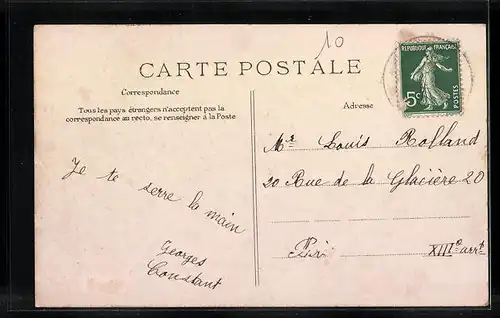 10
CARTE POSTALE
RÉPUBLIQUE FRANÇAISE
5c
POSTES
Correspondance
Tous les pays étrangers n'acceptent pas la
correspondance au recto, se renseigner à la Poste
Adresse
Je te serre la main
Georges
Constant
Mr Louis Rolland
20 Rue de la Glacière 20
Paris XIIIe arrt